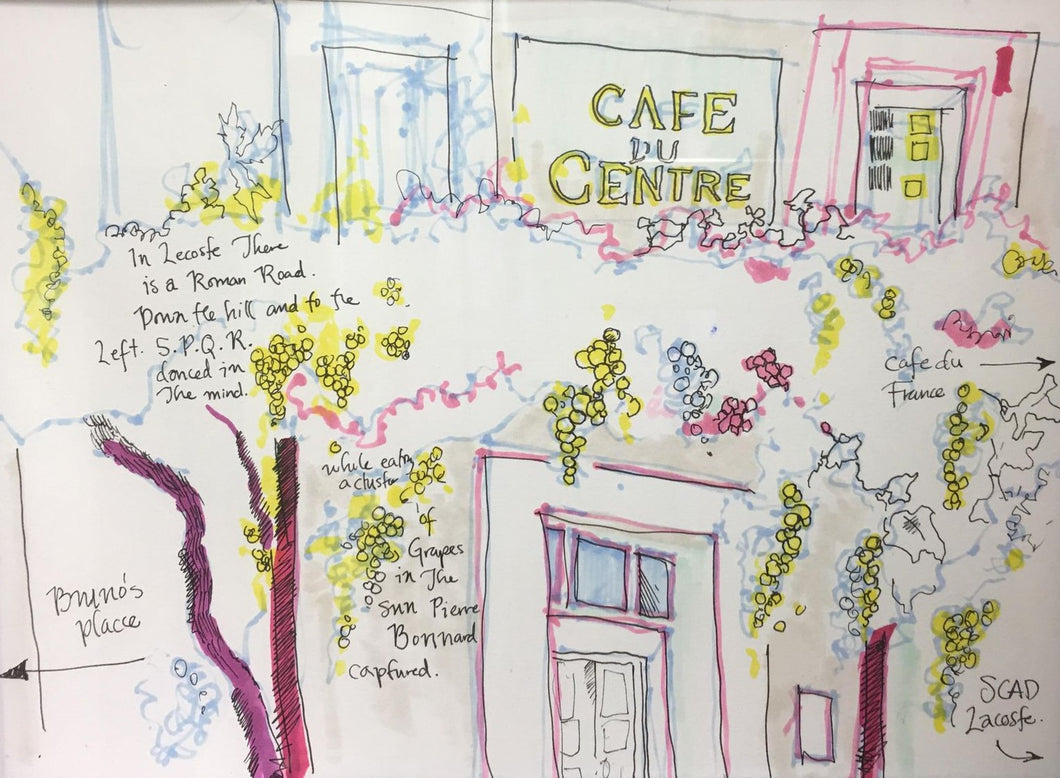 CAFE
DU
CENTRE
In Lacoste There
is a Roman Road.
Down the hill and to the
Left. S.P.Q.R.
danced in
The mind.
while eating
a cluster
of
Grapes
in The
Sun Pierre
Bonnard
captured.
Bruno's
placce
cafe du
France
SCAD
Lacoste.